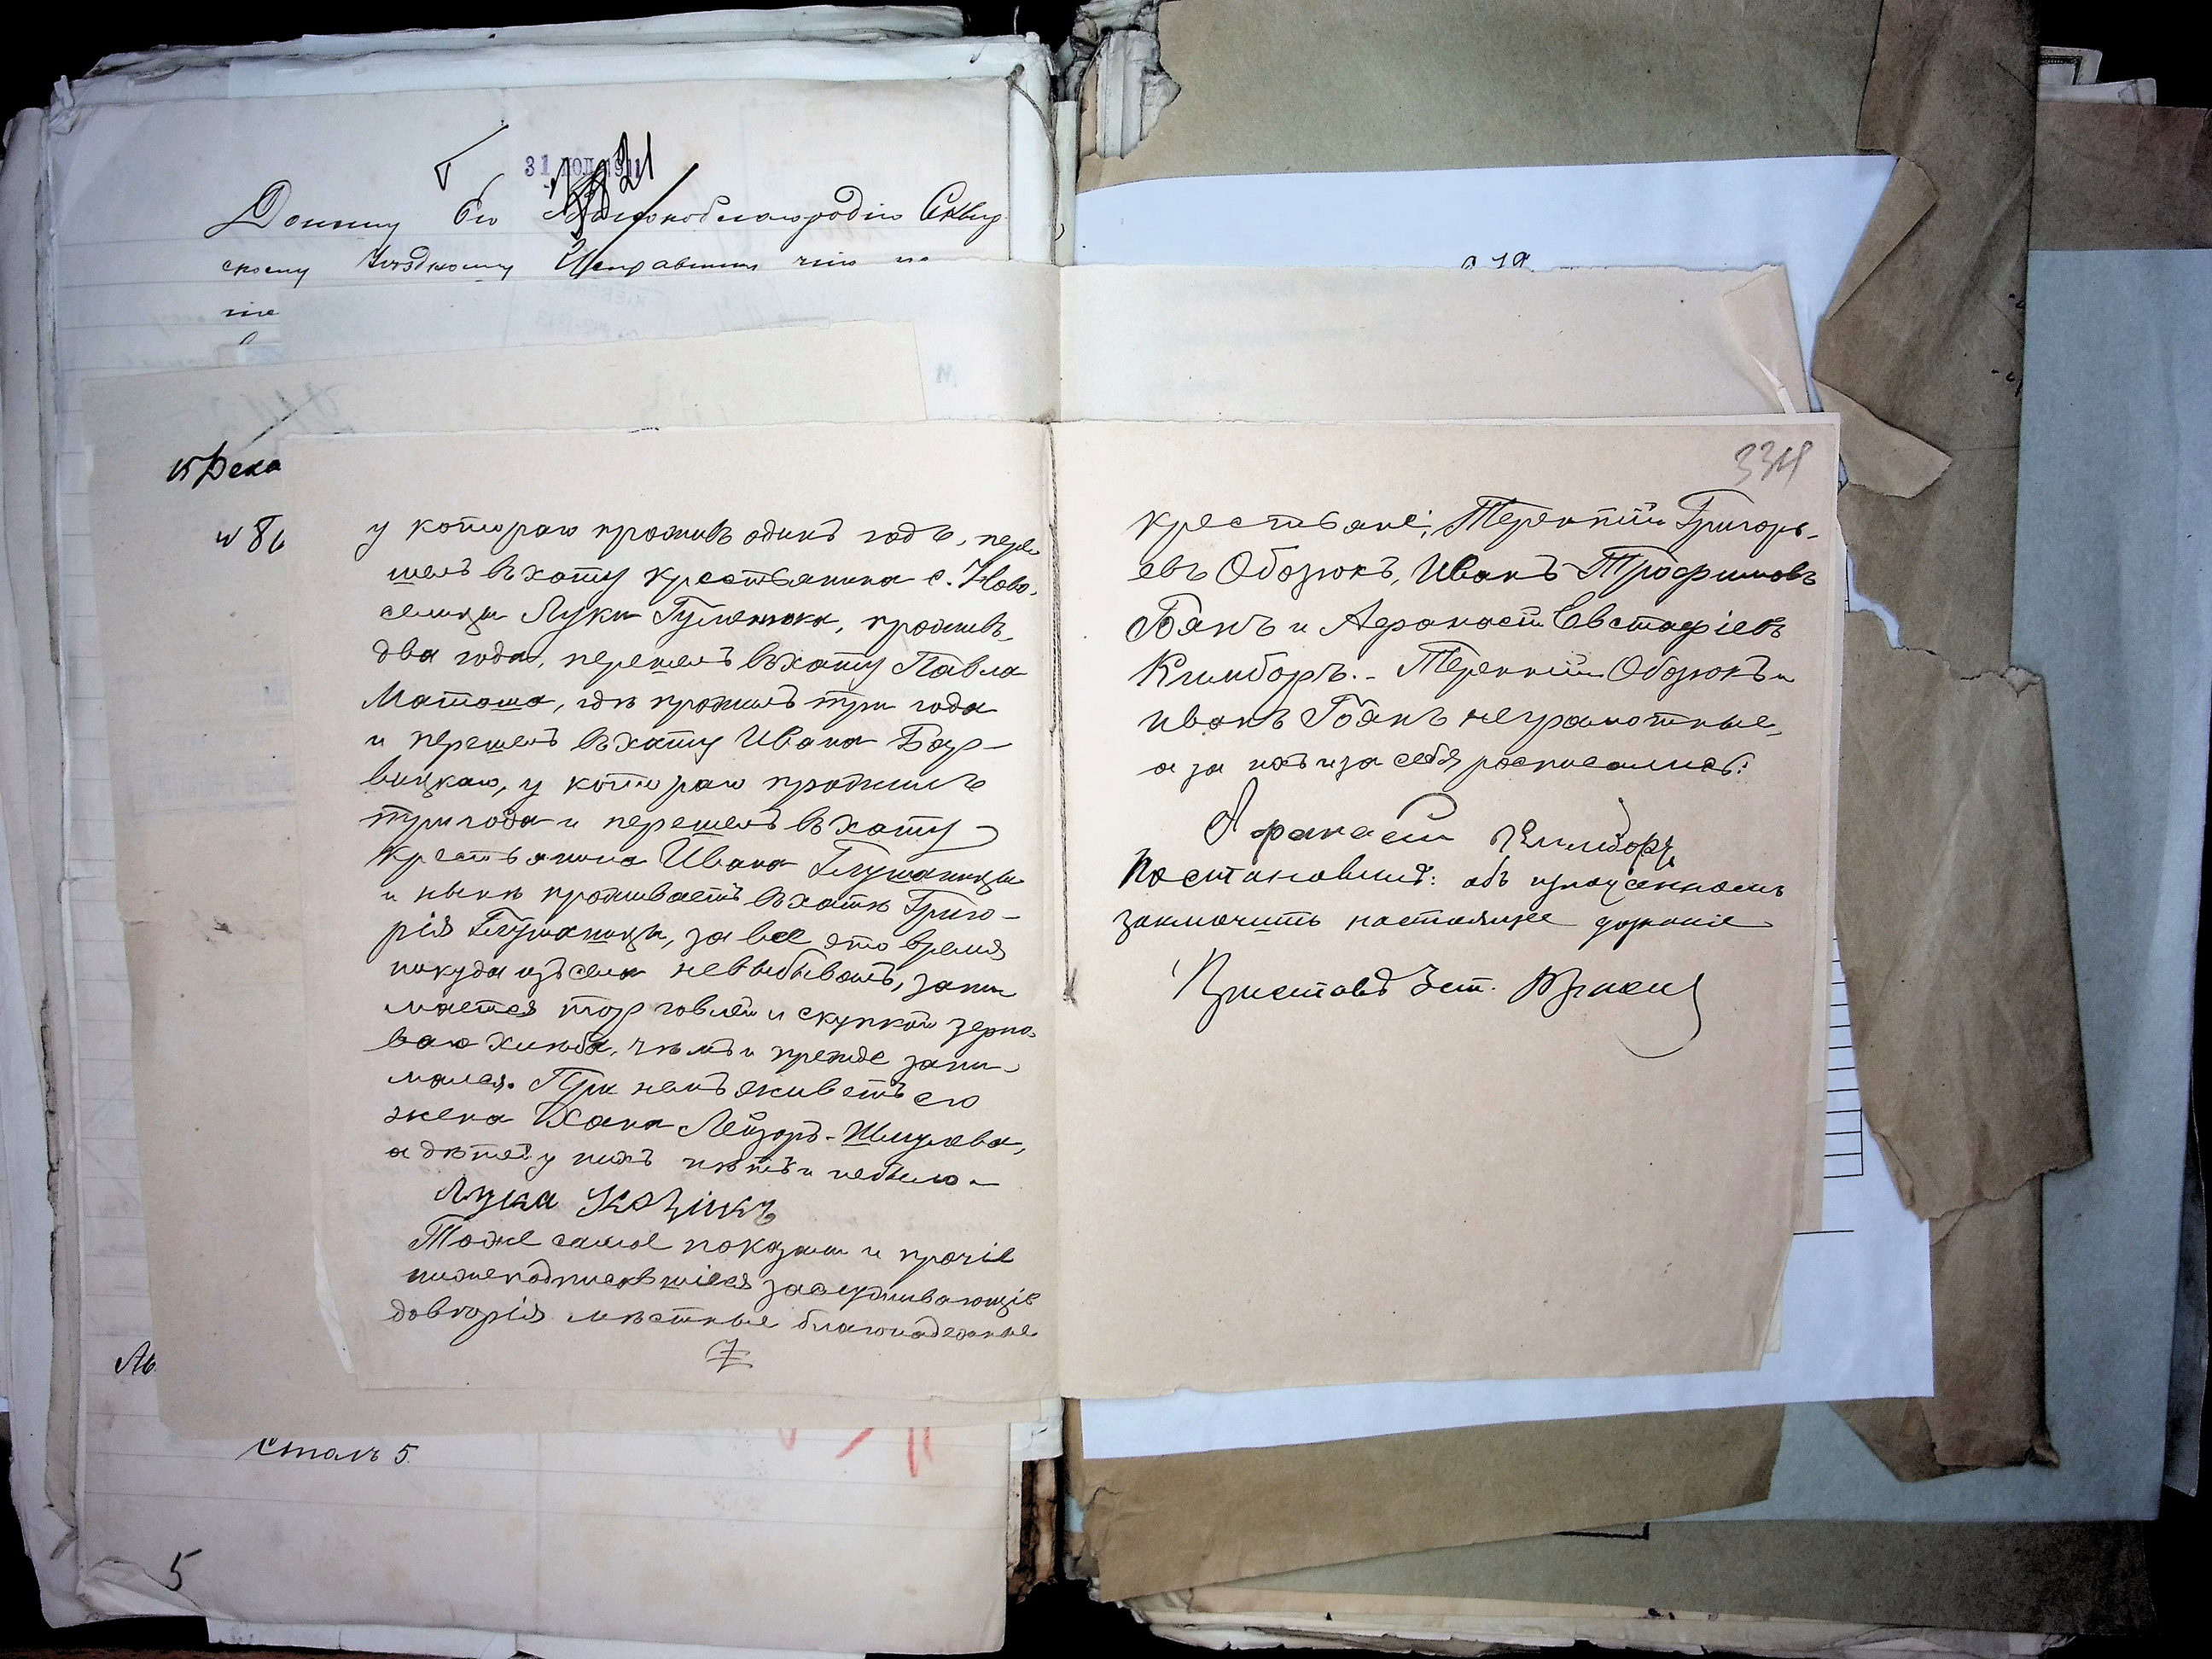 31
Его Высокоблагородію Сквир
скому Уѣздному Исправнику
15 Дека
334
у котораго проживъ одинъ годъ, пере
шелъ въ хату крестьянина с. Ново-
селицы Луки Гуменюка, проживъ
два года, перешелъ въ хату Павла
Маташа, гдѣ прожилъ три года
и перешелъ въ хату Ивана Бар-
вицкаго, у котораго прожилъ
три года и перешелъ въ хату
крестьянина Ивана Глушаницы
и нынѣ проживаетъ въ хатѣ Григо-
рія Глушаницы, за все это время
никуда изъ села не выбывалъ, зани
мается торговлей и скупкой зерно-
ваго хлѣба, чѣмъ и прежде зани-
мался. При немъ живетъ его
жена Хана Лейзоръ-Шмулева,
а дѣтей у нихъ нѣтъ и не было.
Лука
Тоже самое показали и прочіе
нижеподписавшіеся заслуживающіе
довѣрія мѣстные благонадежные
крестьяне: Терентій Григорь-
евъ Обозюкъ, Иванъ Трофимовъ
Боянъ и Афанасій Евстафіевъ
Климборъ. - Терентій Обозюкъ и
Иванъ Боянъ неграмотные,
а за нихъ и за себя росписались:
Афанасій Климборъ
Постановилъ: объ изложенномъ
заключить настоящее дознаніе
Приставъ 3 ст.
столъ 5.
5